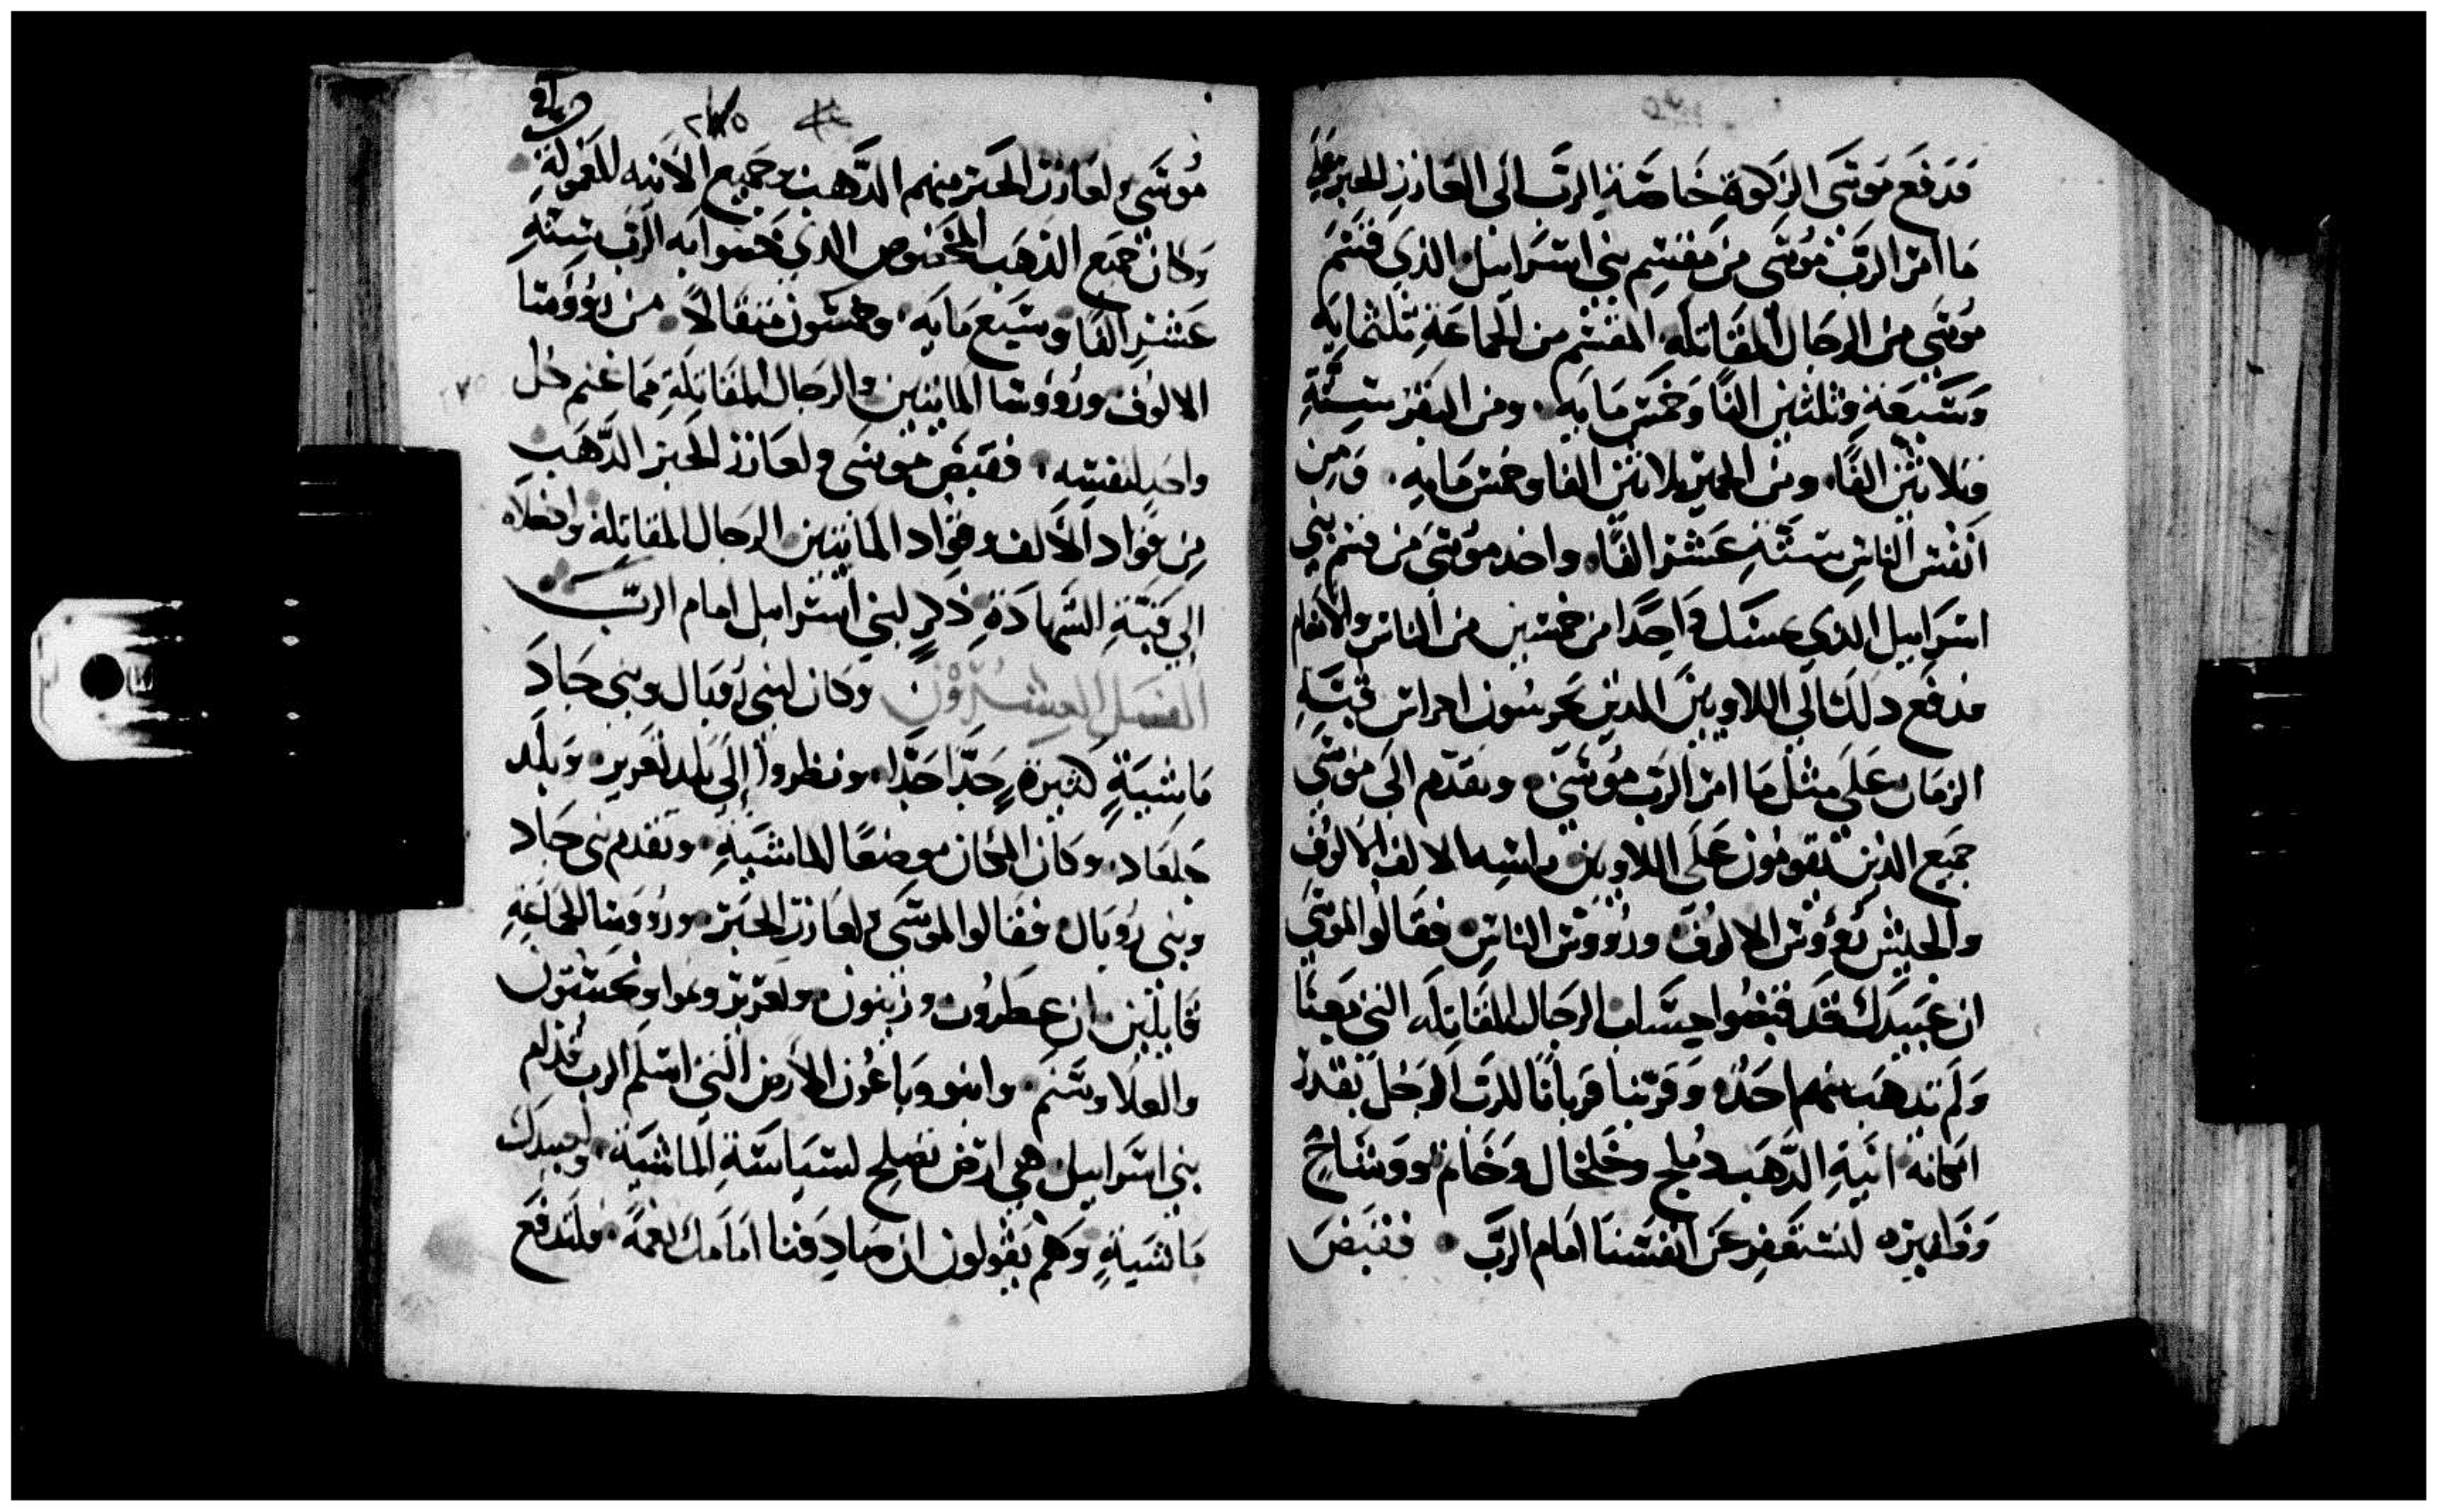 فدفع موسى الزكوة خاصة الرب الى العازر الحبر على
ما امر الرب موسى من مقسم بني اسراييل الذي قسم
موسى من الرجال المقاتله المقسم من الجماعة ثلثمايه
وسبعة وثلثين الفًا وخمس مايه ومن البقر ستة
وثلاثين الفًا ومن الحمير ثلاثين الفا وخمس مايه ومن
انفس الناس ستة عشر الفًا واخد موسى من قسم بني
اسراييل الذي واحدًا من خمسين من الناس والانعام
فدفع دلك الى اللاويين الدين يحرسون احراس قبة
الزمان على مثل ما امر الرب موسى وتقدم الى موسى
جميع الذين يقومون على اللاويين الالوف
والجيش رؤوس الالوف ورؤوس الناس فقالوا لموسى
ان عبيدك قد قبضوا حساب الرجال المقاتله التي معنا
ولم يدهب منهم احد وقربنا قربانا للرب الرجل بقدر
امكانه انية الدهب دملج وخلخال وخاتم ووشاح
لنستغفر عن انفسنا امام الرب فقبض
موسى ولعازر الحبر منهم الدهب وجميع الانيه المعمولة
وكان جميع الذهب المخصوص الدي خصوا به الرب ستة
عشر الفا وسبع مايه وخمسون مثقالا من رؤوسا
الالوف ورؤوسا المايتين والرجال المقاتلة مما غنم كل
واحد لنفسه فقبض موسى ولعازر الحبر الدهب
من قواد الالف وقواد المايتين الرجال المقاتله وادخلاه
الى قبة الشهادة ذكر لبني اسراييل امام الرب
الفصل العشرون وكان لبني روبال وبني جاد
ماشية كثيرة جدا جدا ونظروا الى بلد لعزير وبلد
جلعاد وكان المكان موضعًا للماشية وتقدم بني جاد
وبني روبال فقالوا لموسى ولعازر الحبر ورؤوسا الجماعة
قايلين ان عطرون وزينون ولعزير ونموا وحسبون
والعلا وسنم وانبو وباعون الارض التي اسلم الرب قدام
بني اسراييل هي ارض تصلح لسياسة الماشية ولعبيدك
ماشية وهم يقولون ان صادفنا امامك نعمة فلتدفع